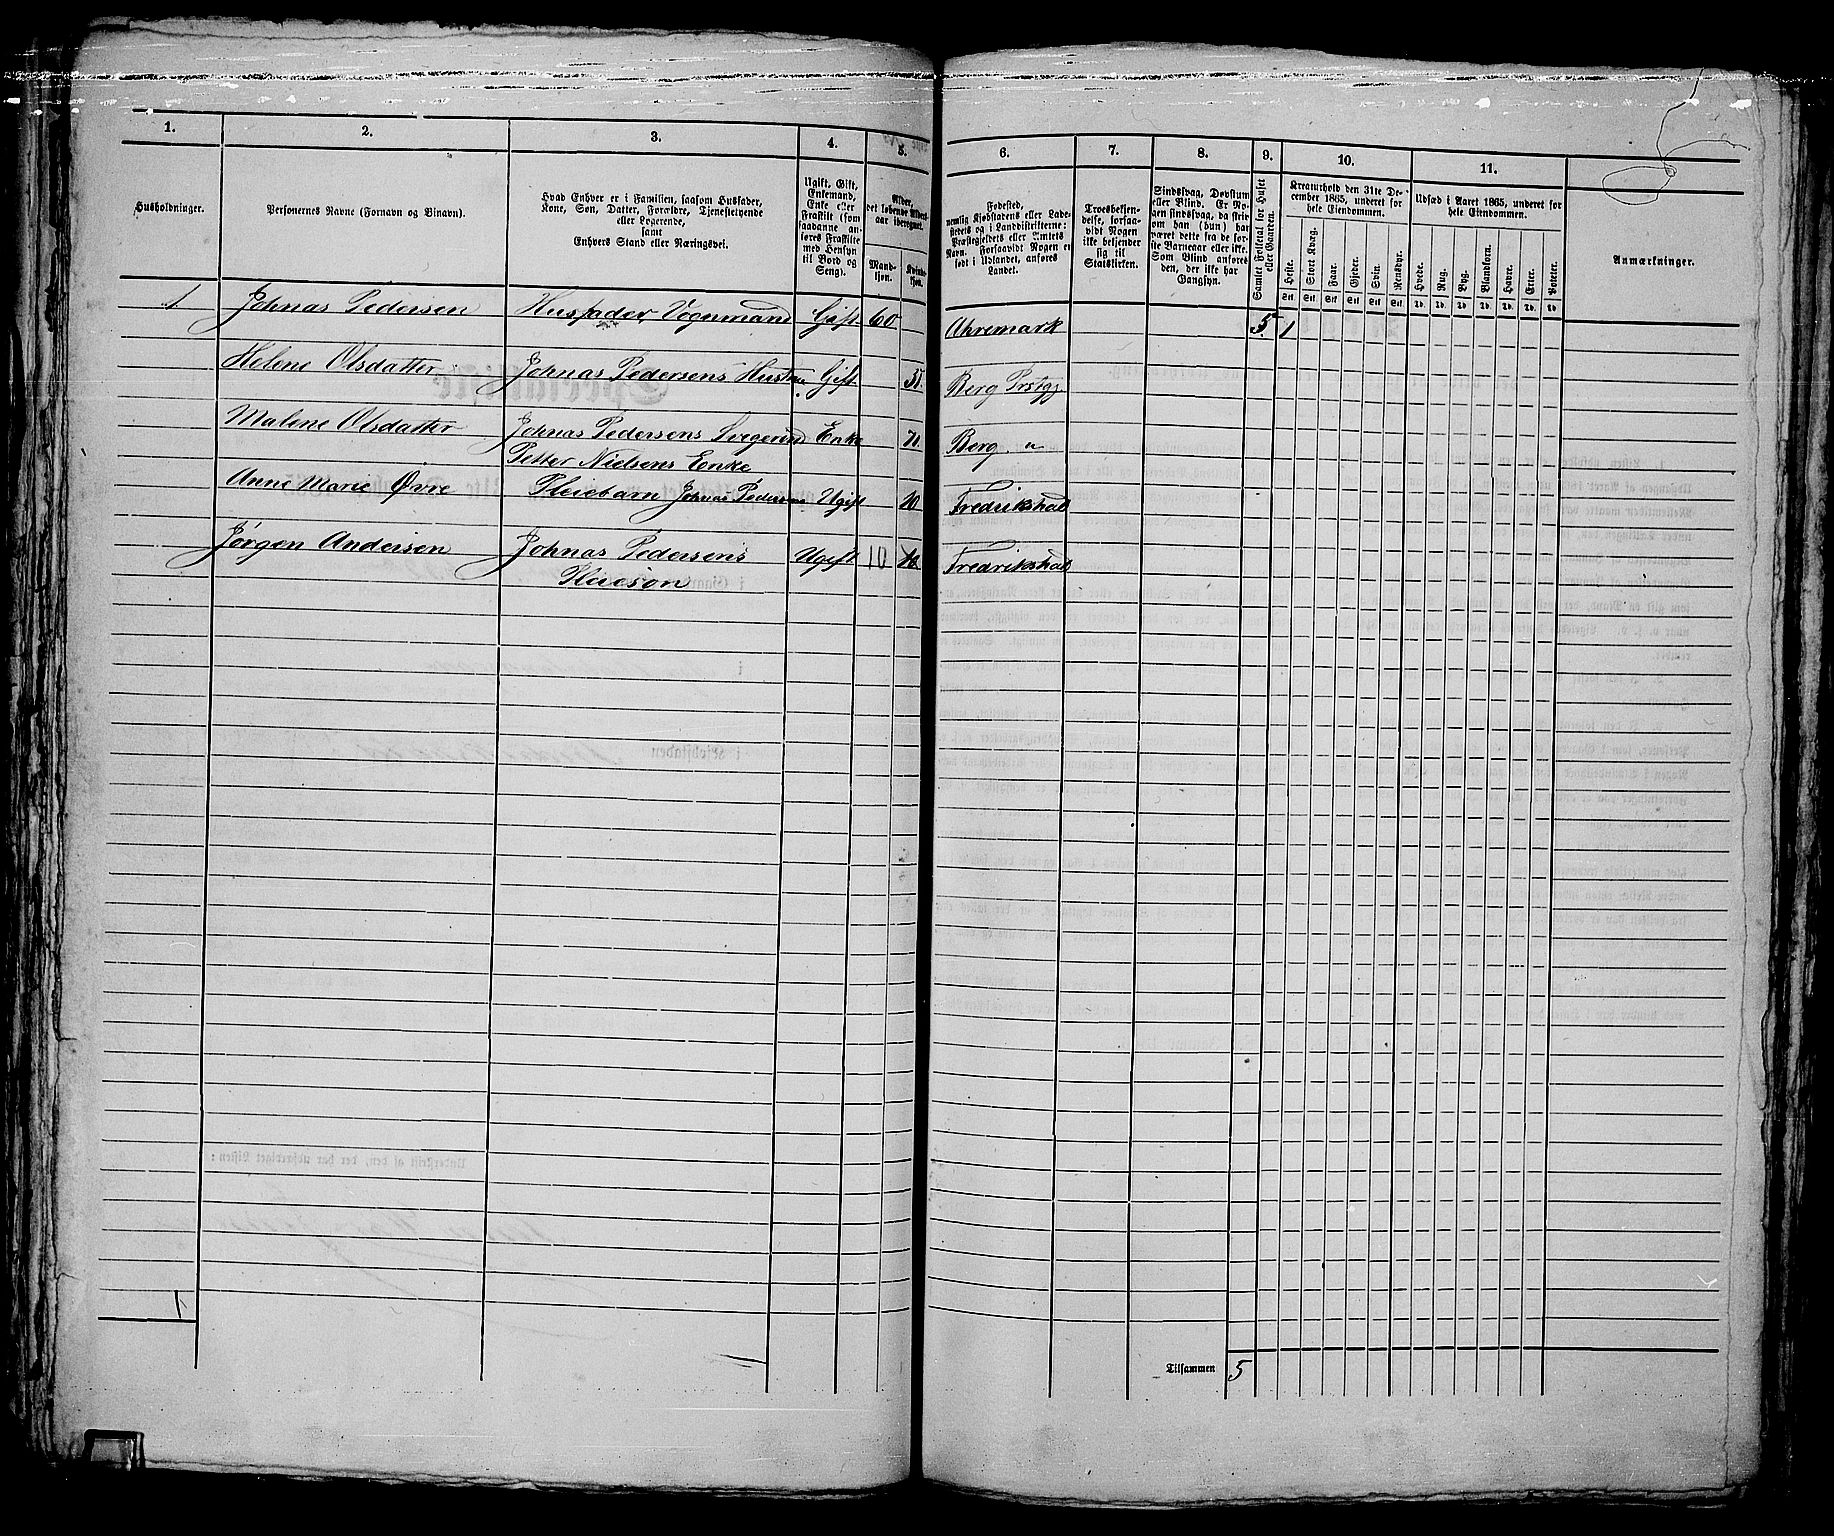 1. 2. 3. 4. 5.
Husholdninger.
Personernes Navne (Fornavn og Binavn).
Hvad Enhver er i Familien, saasom Husfader,
Kone, Søn, Datter, Forældre, Tjenestetyende
eller Logerende,
samt
Enhvers Stand eller Næringsvei.
Ugift, Gift,
Enkemand,
Enke eller
Fraskilt (som
saadanne an-
føres Fraskilte
med Hensyn
til Bord og
Seng).
Alder,
det løbende Alders-
aar iberegnet.
Mand-
kjøn.
Kvinde-
kjøn.
1 Johnas Pedersen Husfader, Vognmand Gift 60
Helene Olsdatter Johnas Pedersens Hustru Gift 51
Malene Olsdatter Johnas Pedersens Enke 71
Petter Nielsens Enke
Anne Marie Øvre Pleiebarn Johnas Pedersens Ugift 10
Jørgen Andersen Johnas Pedersens Ugift 10
Pleiesøn
1
6. 7. 8. 9. 10. 11.
Fødested,
nemlig Kjøbstadens eller Lade-
stedets og i Landdistrikterne:
Præstegjeldets eller Amtets
Navn. Forsaavidt Nogen er
født i Udlandet, anføres
Landet.
Troesbekjen-
delse, forsaa-
vidt Nogen
ikke bekjender
sig til
Statskirken.
Sindssvag, Døvstum
eller Blind. Er No-
gen sindssvag, da skriv
om han (hun) har
været dette fra de før-
ste Barneaar eller ikke.
Som Blind anføres
den, der ikke har
Gangsyn.
Samlet Folketal for Huset
eller Gaarden.
Kreaturhold den 31te De-
cember 1865, underet for
hele Eiendommen.
Heste. Stort Kvæg. Faar. Gjeder. Svin. Rensdyr.
Stk Stk Stk Stk Stk Stk
Udsæd i Aaret 1865, underet for
hele Eiendommen.
Hvede. Rug. Byg. Blandkorn. Havre. Erter. Poteter.
Td. Td. Td. Td. Td. Td. Td.
Anmærkninger.
Ahremark 5 1
Berg
Berg "
Fredrikshald
Fredrikshald
Tilsammen 5